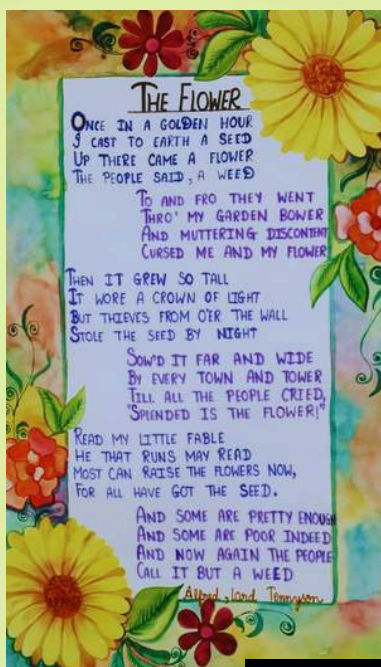 THE FLOWER
ONCE IN A GOLDEN HOUR
I CAST TO EARTH A SEED
UP THERE CAME A FLOWER
THE PEOPLE SAID, A WEED
TO AND FRO THEY WENT
THRO' MY GARDEN BOWER
AND MUTTERING DISCONTENT
CURSED ME AND MY FLOWER
THEN IT GREW SO TALL
IT WORE A CROWN OF LIGHT
BUT THIEVES FROM O'ER THE WALL
STOLE THE SEED BY NIGHT
SOW'D IT FAR AND WIDE
BY EVERY TOWN AND TOWER
TILL ALL THE PEOPLE CRIED,
"SPLENDED IS THE FLOWER!"
READ MY LITTLE FABLE
HE THAT RUNS MAY READ
MOST CAN RAISE THE FLOWERS NOW,
FOR ALL HAVE GOT THE SEED.
AND SOME ARE PRETTY ENOUGH
AND SOME ARE POOR INDEED
AND NOW AGAIN THE PEOPLE
CALL IT BUT A WEED
Alfred, Lord Tennyson